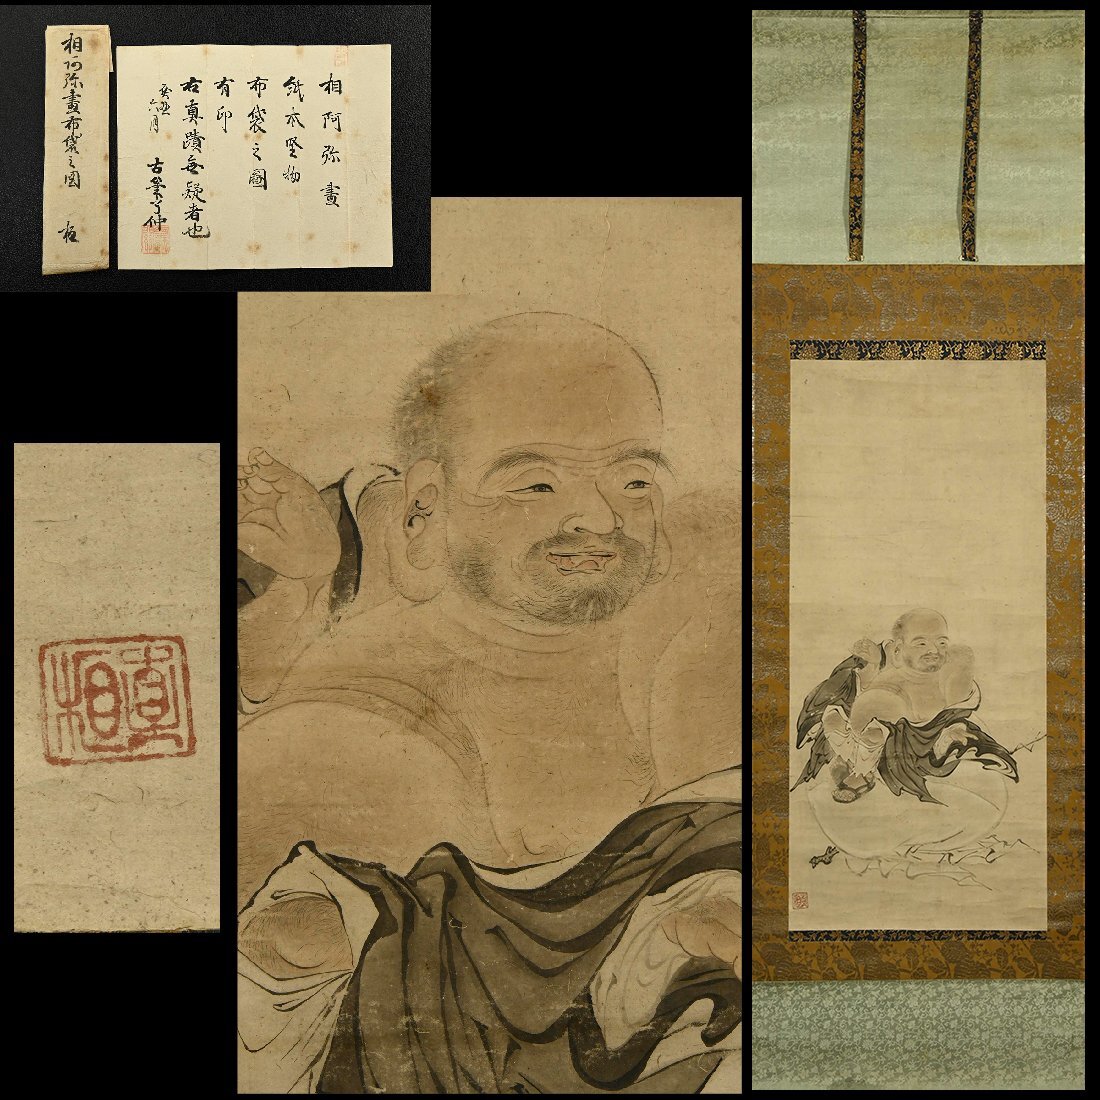 相阿弥畫布袋之図
極
相阿弥畫
紙本竪物
布袋之圖
有印
右真蹟無疑者也
六月
古筆了仲
相